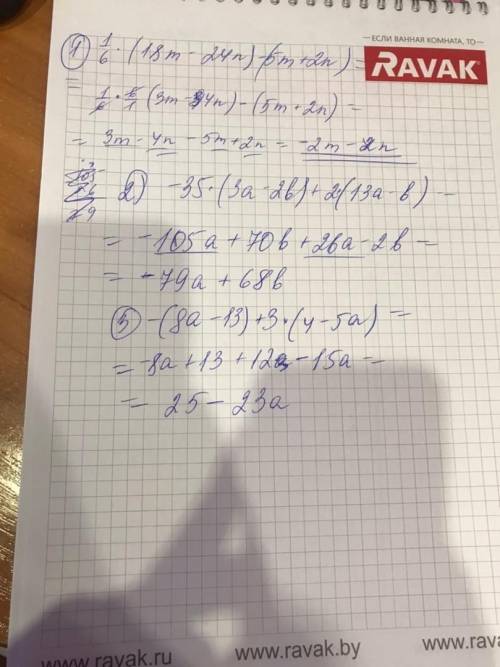 — ЕСЛИ ВАННАЯ КОМНАТА, ТО —
RAVAK®
1) 1/6 · (18m - 24n) - (5m + 2n) =
= 1/6 · 6/1 (3m - 4n) - (5m + 2n) =
= 3m - 4n - 5m + 2n = -2m - 2n
105
26
79
2) -35 · (3a - 2b) + 2(13a - b) -
= -105a + 70b + 26a - 2b -
= -79a + 68b
3) -(8a - 13) + 3 · (4 - 5a) =
= -8a + 13 + 12 - 15a =
= 25 - 23a
www.ravak.ru www.ravak.by www.ravak